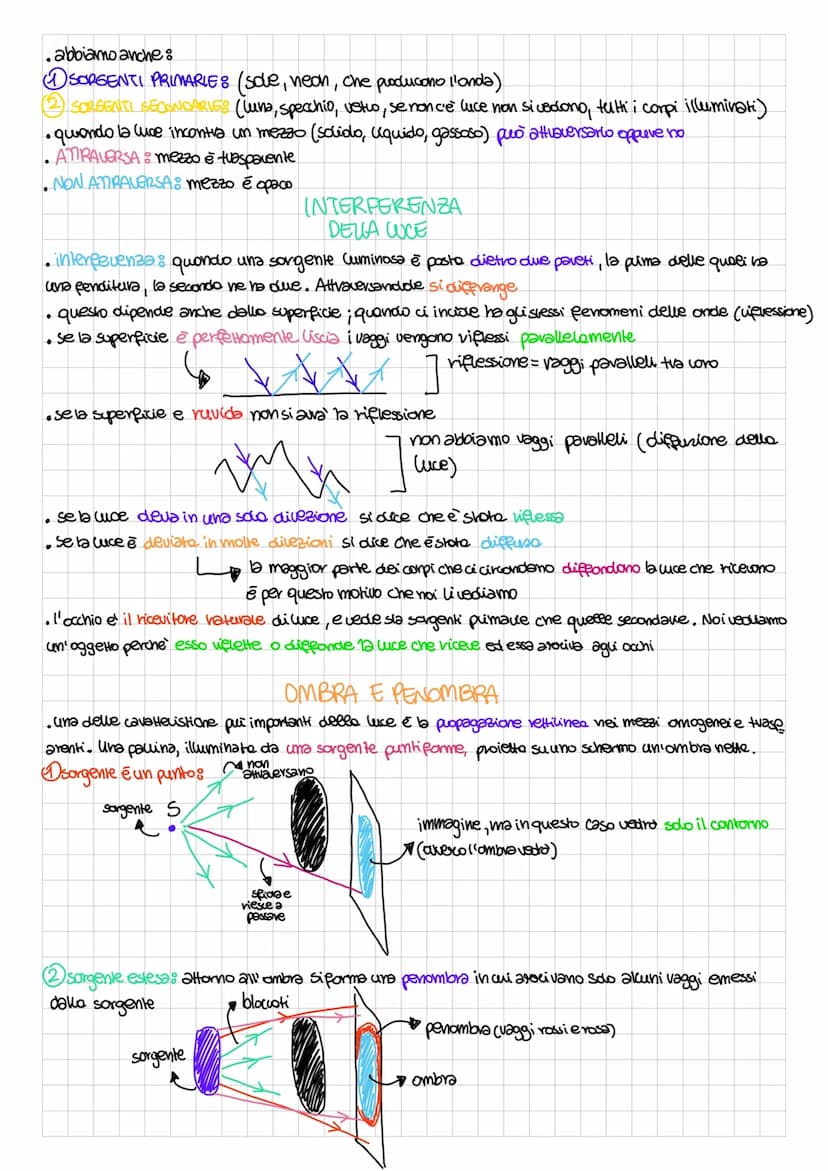 . abbiamo anche:
① SORGENTI PRIMARIE: (sole, neon, che producono l'onda)
② SORGENTI SECONDARIE: (luna, specchio, vetro, se non c'è luce non si vedono, tutti i corpi illuminati)
. quando la luce incontra un mezzo (solido, liquido, gassoso) può attraversarlo oppure no
. ATTRAVERSA: mezzo è trasparente
. NON ATTRAVERSA: mezzo é opaco
INTERFERENZA
DELLA LUCE
. interferenza: quando una sorgente luminosa é posta dietro due pareti, la prima delle quali ha
una fenditura, la seconda ne ha due. Attraversandole si diffrange
. questo dipende anche dalla superficie; quando ci incide ha gli stessi fenomeni delle onde (riflessione)
. se la superficie è perfettamente liscia i raggi vengono riflessi parallelamente
riflessione = raggi paralleli tra loro
. se la superficie e ruvida non si avra' la riflessione
non abbiamo raggi paralleli (diffusione della
luce)
. se la luce devia in una sola direzione si dice che è stata riflessa
. se la luce è deviata in molte direzioni si dice che è stata diffusa
la maggior parte dei corpi che ci circondano diffondono la luce che ricevono
é per questo motivo che noi li vediamo
. l'occhio e' il ricevitore naturale di luce, e vede sia sorgenti primarie che quelle secondarie. Noi vediamo
un'oggetto perche' esso riflette o diffonde la luce che riceve ed essa arriva agli occhi
OMBRA E PENOMBRA
. una delle caratteristiche piú importanti della luce é la propagazione rettilinea nei mezzi omogenei e trasp
arenti. Una pallina, illuminata da una sorgente puntiforme, proietta su uno schermo un'ombra netta.
① sorgente é un punto:
non
attraversano
sorgente S
immagine, ma in questo caso vedrò solo il contorno
(avero l'ombra vedrò)
sfiora e
riesce a
passare
② sorgente estesa: attorno all'ombra si forma una penombra in cui arrivano solo alcuni raggi emessi
dalla sorgente
bloccati
penombra (raggi rossi e rosa)
sorgente
ombra